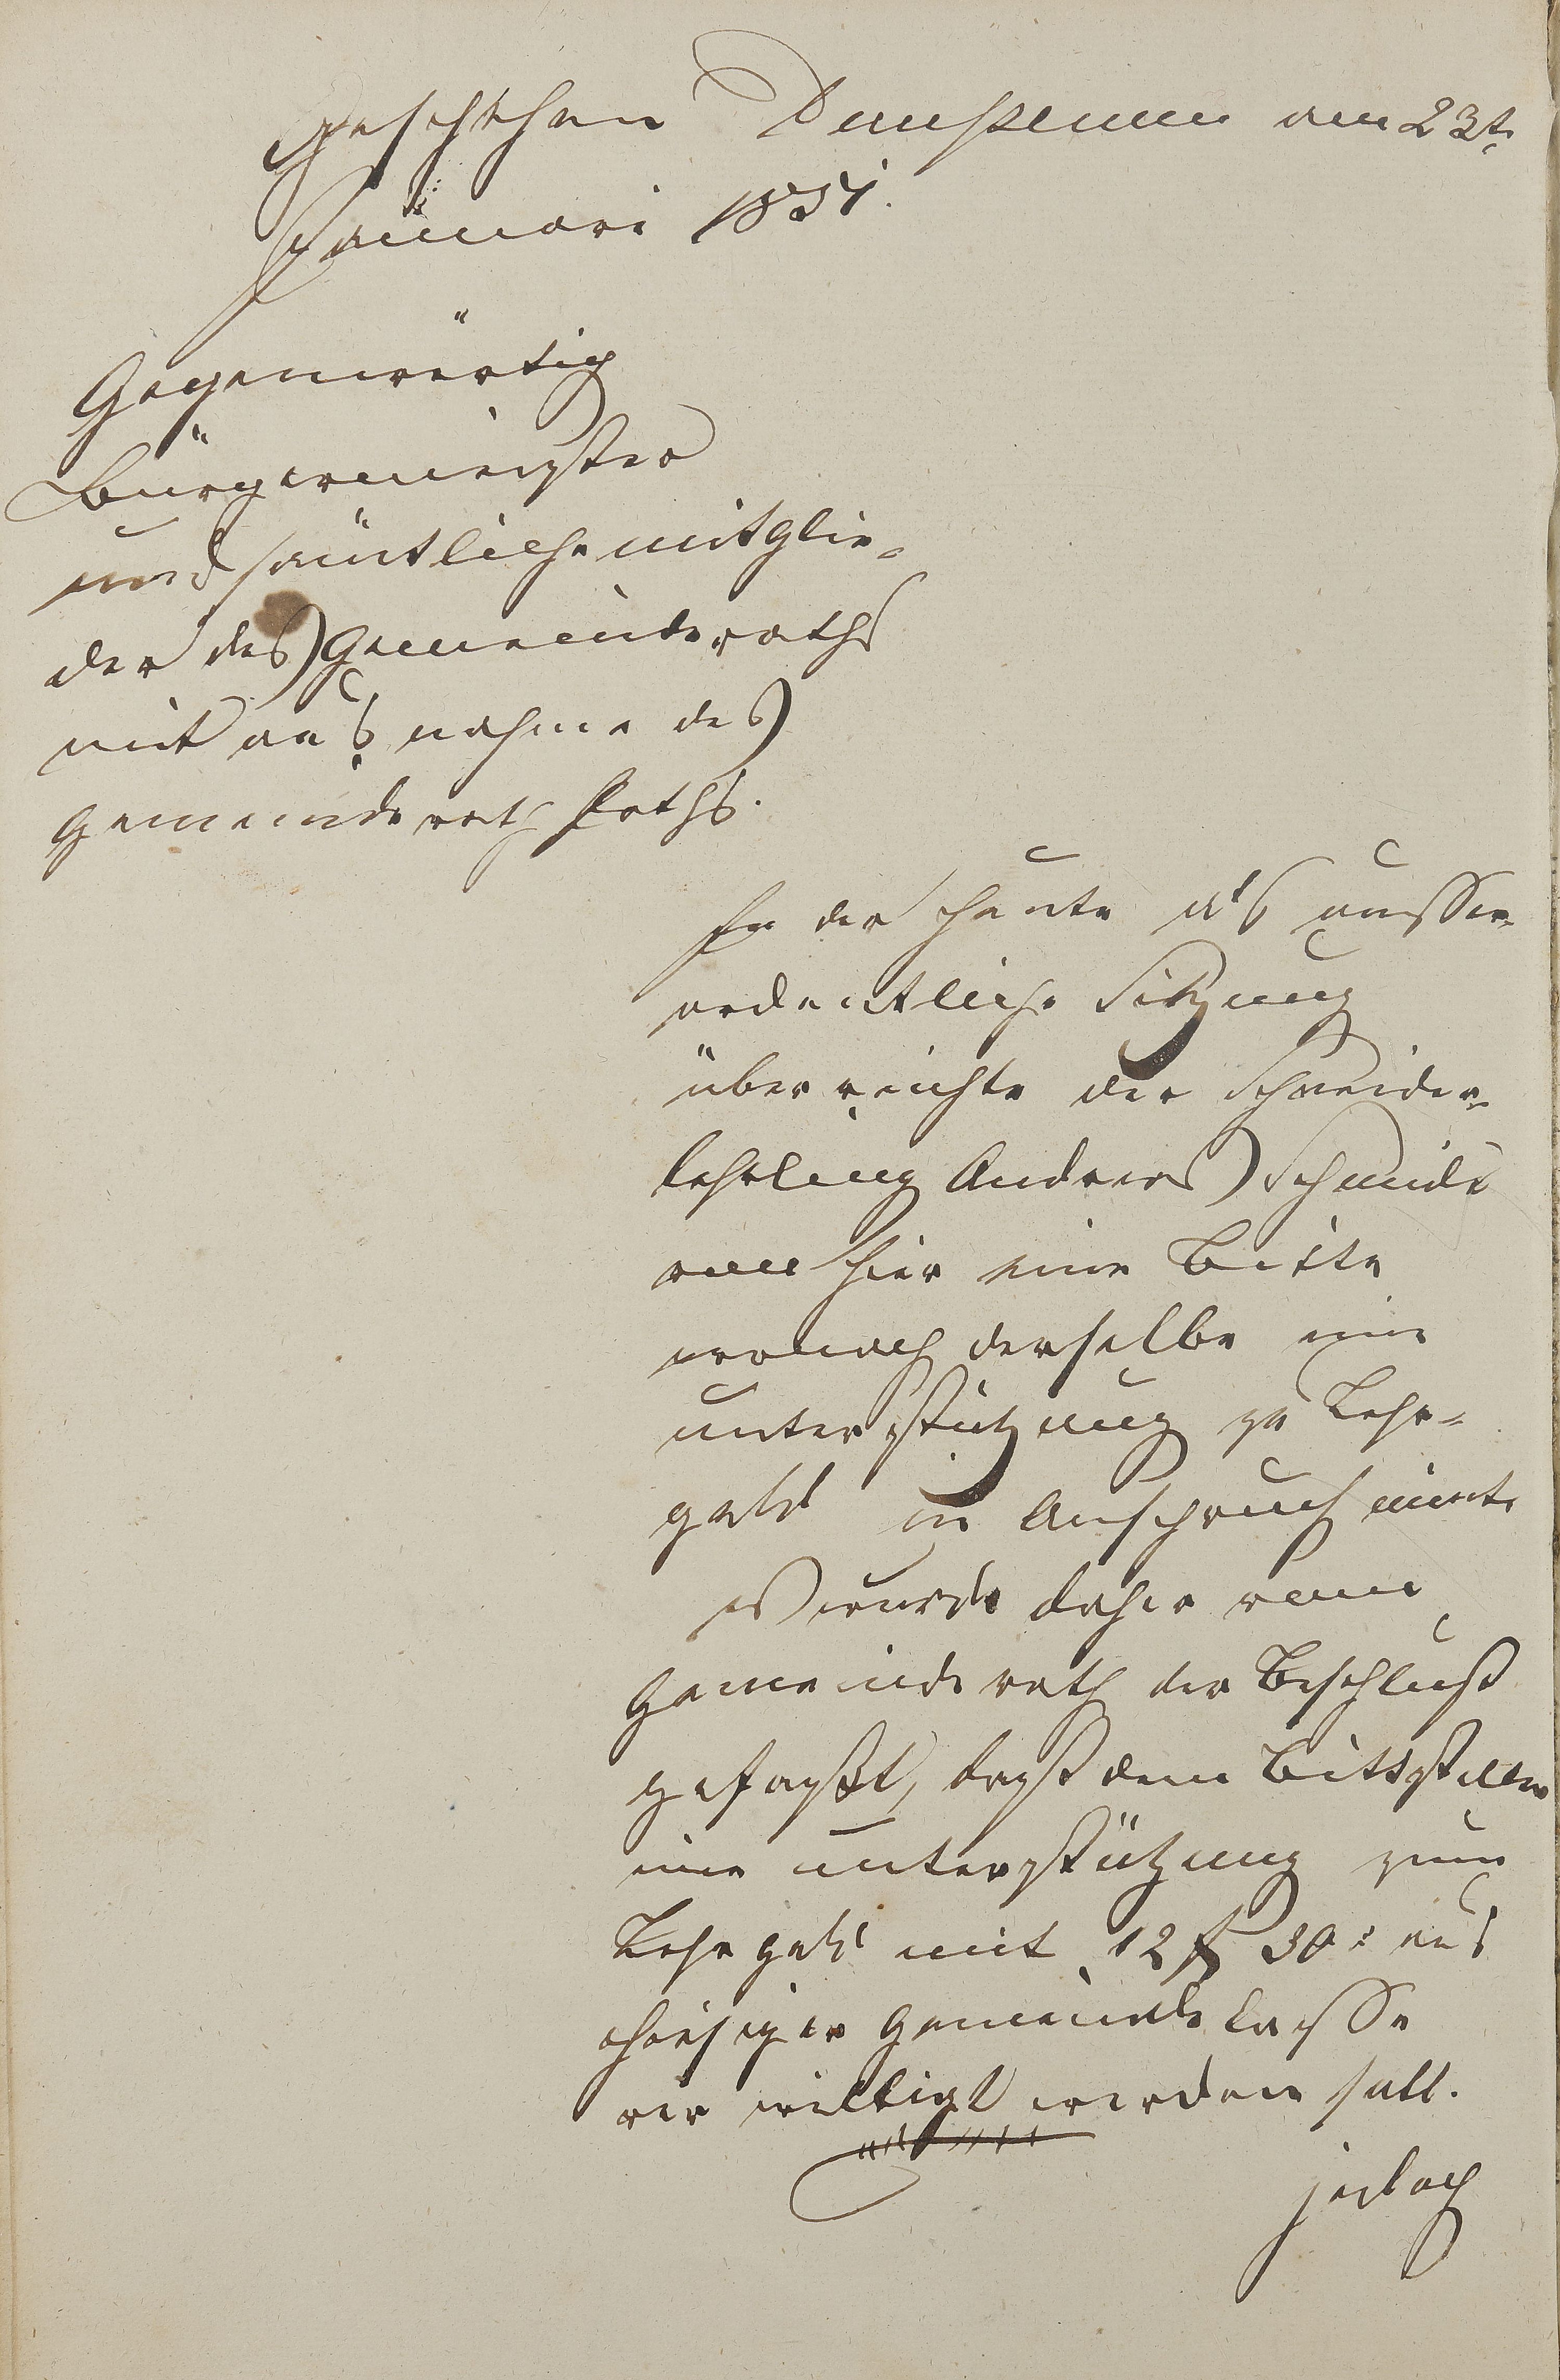 Geschehen am 23t.
Januari 1851.
Gegenwärtig
Bürgermeister
und sämtliche mitglie-
der des Gemeinderaths
mit ausnahme des
gemeinderath
In der heute als ausser-
ordentliche Sitzung
überreichte der Schneider-
lehrling Andreas Schmidt
von hier eine Bitte
wonach derselbe eine
unterstützung zu Lehr-
geld in Anspruch nimt.
Es wurde daher vom
Gemeinderath der Beschluß
gefaßt, daß dem Bittsteller
eine unterstützung zum
Lehrgeld mit 12 f 30 x aus
hiesiger Gemeindekasse
ver willigt werden soll.
jedoch